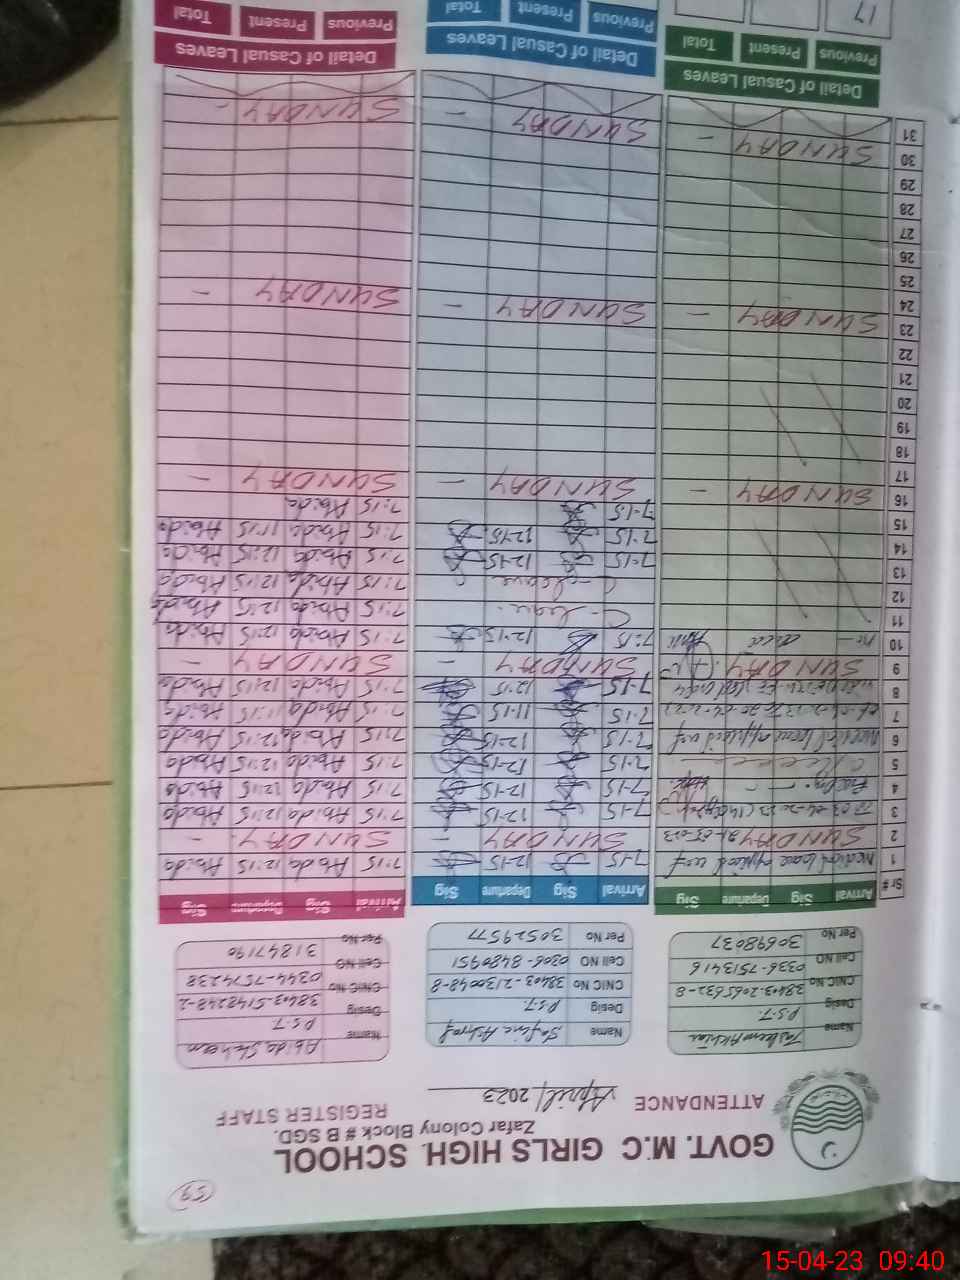 59
GOVT. M.C GIRLS HIGH. SCHOOL
Zafar Colony Block # B SGD.
ATTENDANCE April, 2023 REGISTER STAFF
Name Tasleem Akhtar
Desig P.S.T.
CNIC No 38403-2065632-8
Cell NO 0336-7513416
Per No 30698037
Name Safina Ashraf
Desig P.S.T.
CNIC No 38403-2130048-8
Cell NO 0306-8480951
Per No 30529577
Name Abida Shaheen
Desig P.S.T.
CNIC No 38403-5148248-2
Cell NO 0344-7574238
Per No 31847190
Sr # Arrival Sig Departure Sig Arrival Sig Departure Sig Arrival Sig Departure Sig
1 Medical leave applied w.e.f 7-15 12-15 7:15 Abida 12:15 Abida
2 SUNDAY SUNDAY - SUNDAY -
3 7-15 12-15 7:15 Abida 12:15 Abida
4 7-15 12-15 7:15 Abida 12:15 Abida
5 7-15 12-15 7:15 Abida 12:15 Abida
6 Medical leave applied w.e.f 7-15 12-15 7:15 Abida 12:15 Abida
7 7-15 11-15 7:15 Abida 11:15 Abida
8 7-15 12:15 7:15 Abida 12:15 Abida
9 SUNDAY SUNDAY - SUNDAY -
10 7:15 12-15 7:15 Abida 12:15 Abida
11 C-leave 7:15 Abida 12:15 Abida
12 C-leave 7:15 Abida 12:15 Abida
13 7-15 12-15 7:15 Abida 12:15 Abida
14 7-15 12-15 7:15 Abida 11:15 Abida
15 7-15 7:15 Abida
16 SUNDAY - SUNDAY - SUNDAY -
17
18
19
20
21
22
23 SUNDAY - SUNDAY - SUNDAY -
24
25
26
27
28
29
30 SUNDAY - SUNDAY - SUNDAY -
31
Detail of Casual Leaves Detail of Casual Leaves Detail of Casual Leaves
Previous Present Total Previous Present Total Previous Present Total
17
15-04-23 09:40